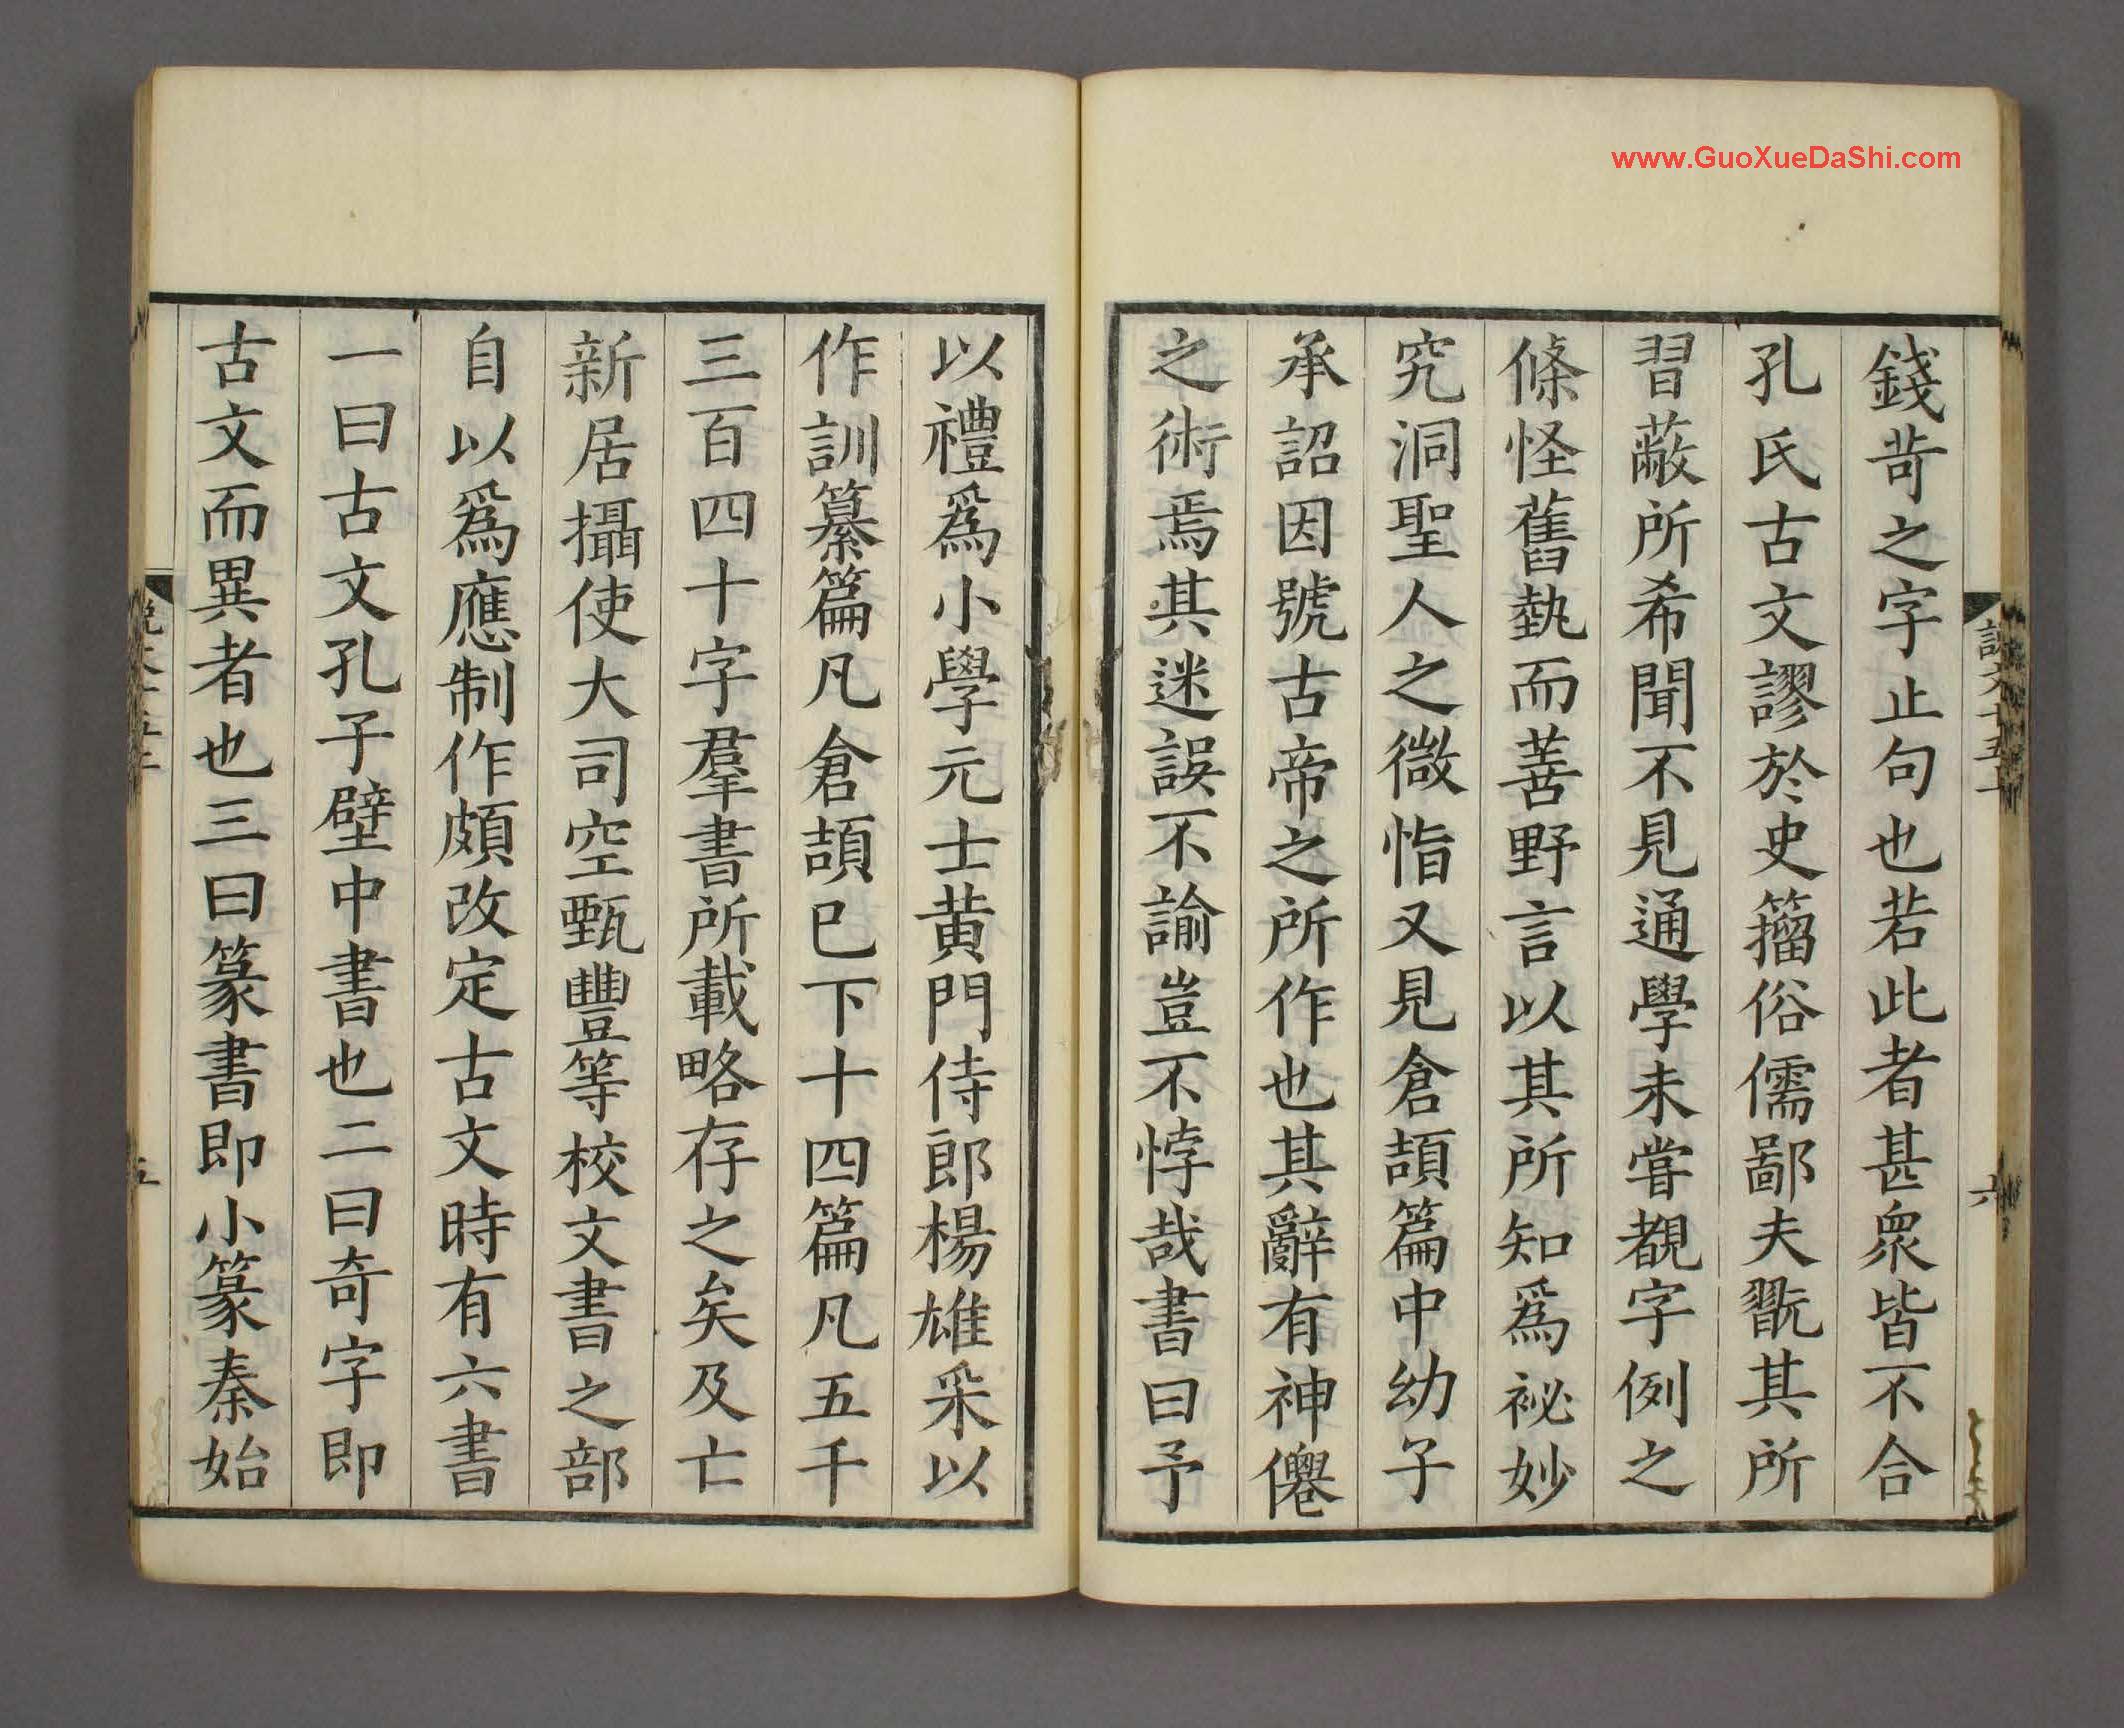 www.GuoXueDaShi.com
錢苛之字止句也若此者甚衆皆不合
孔氏古文謬於史籀俗儒鄙夫翫其所
習蔽所希聞不見通學未嘗覩字例之
條怪舊埶而善野言以其所知爲祕妙
究洞聖人之微恉又見倉頡篇中幼子
承詔因號古帝之所作也其辭有神僊
之術焉其迷誤不諭豈不悖哉書曰予
以禮爲小學元士黃門侍郎楊雄采以
作訓纂篇凡倉頡巳下十四篇凡五千
三百四十字羣書所載略存之矣及亡
新居攝使大司空甄豐等校文書之部
自以爲應制作頗改定古文時有六書
一曰古文孔子壁中書也二曰奇字即
古文而異者也三曰篆書即小篆秦始
說文十五上
六
五